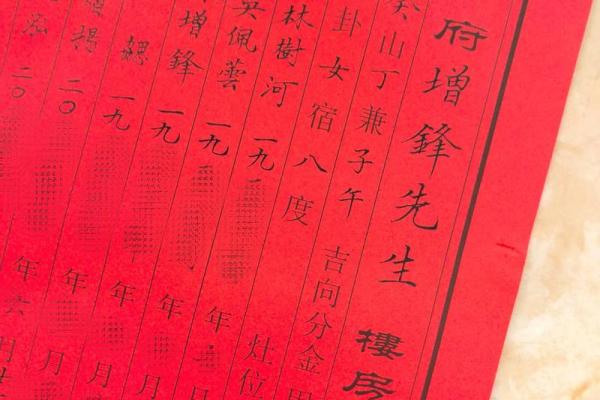 府增鋒先生 樓房
癸山丁兼子午 吉向分金
卦女宿八度
林樹河 一九 灶位
英佩雲 一九 年
增鋒 一九 年 月
勰 一九 年 月
楊 二〇 年 月
泓 二〇 年六月